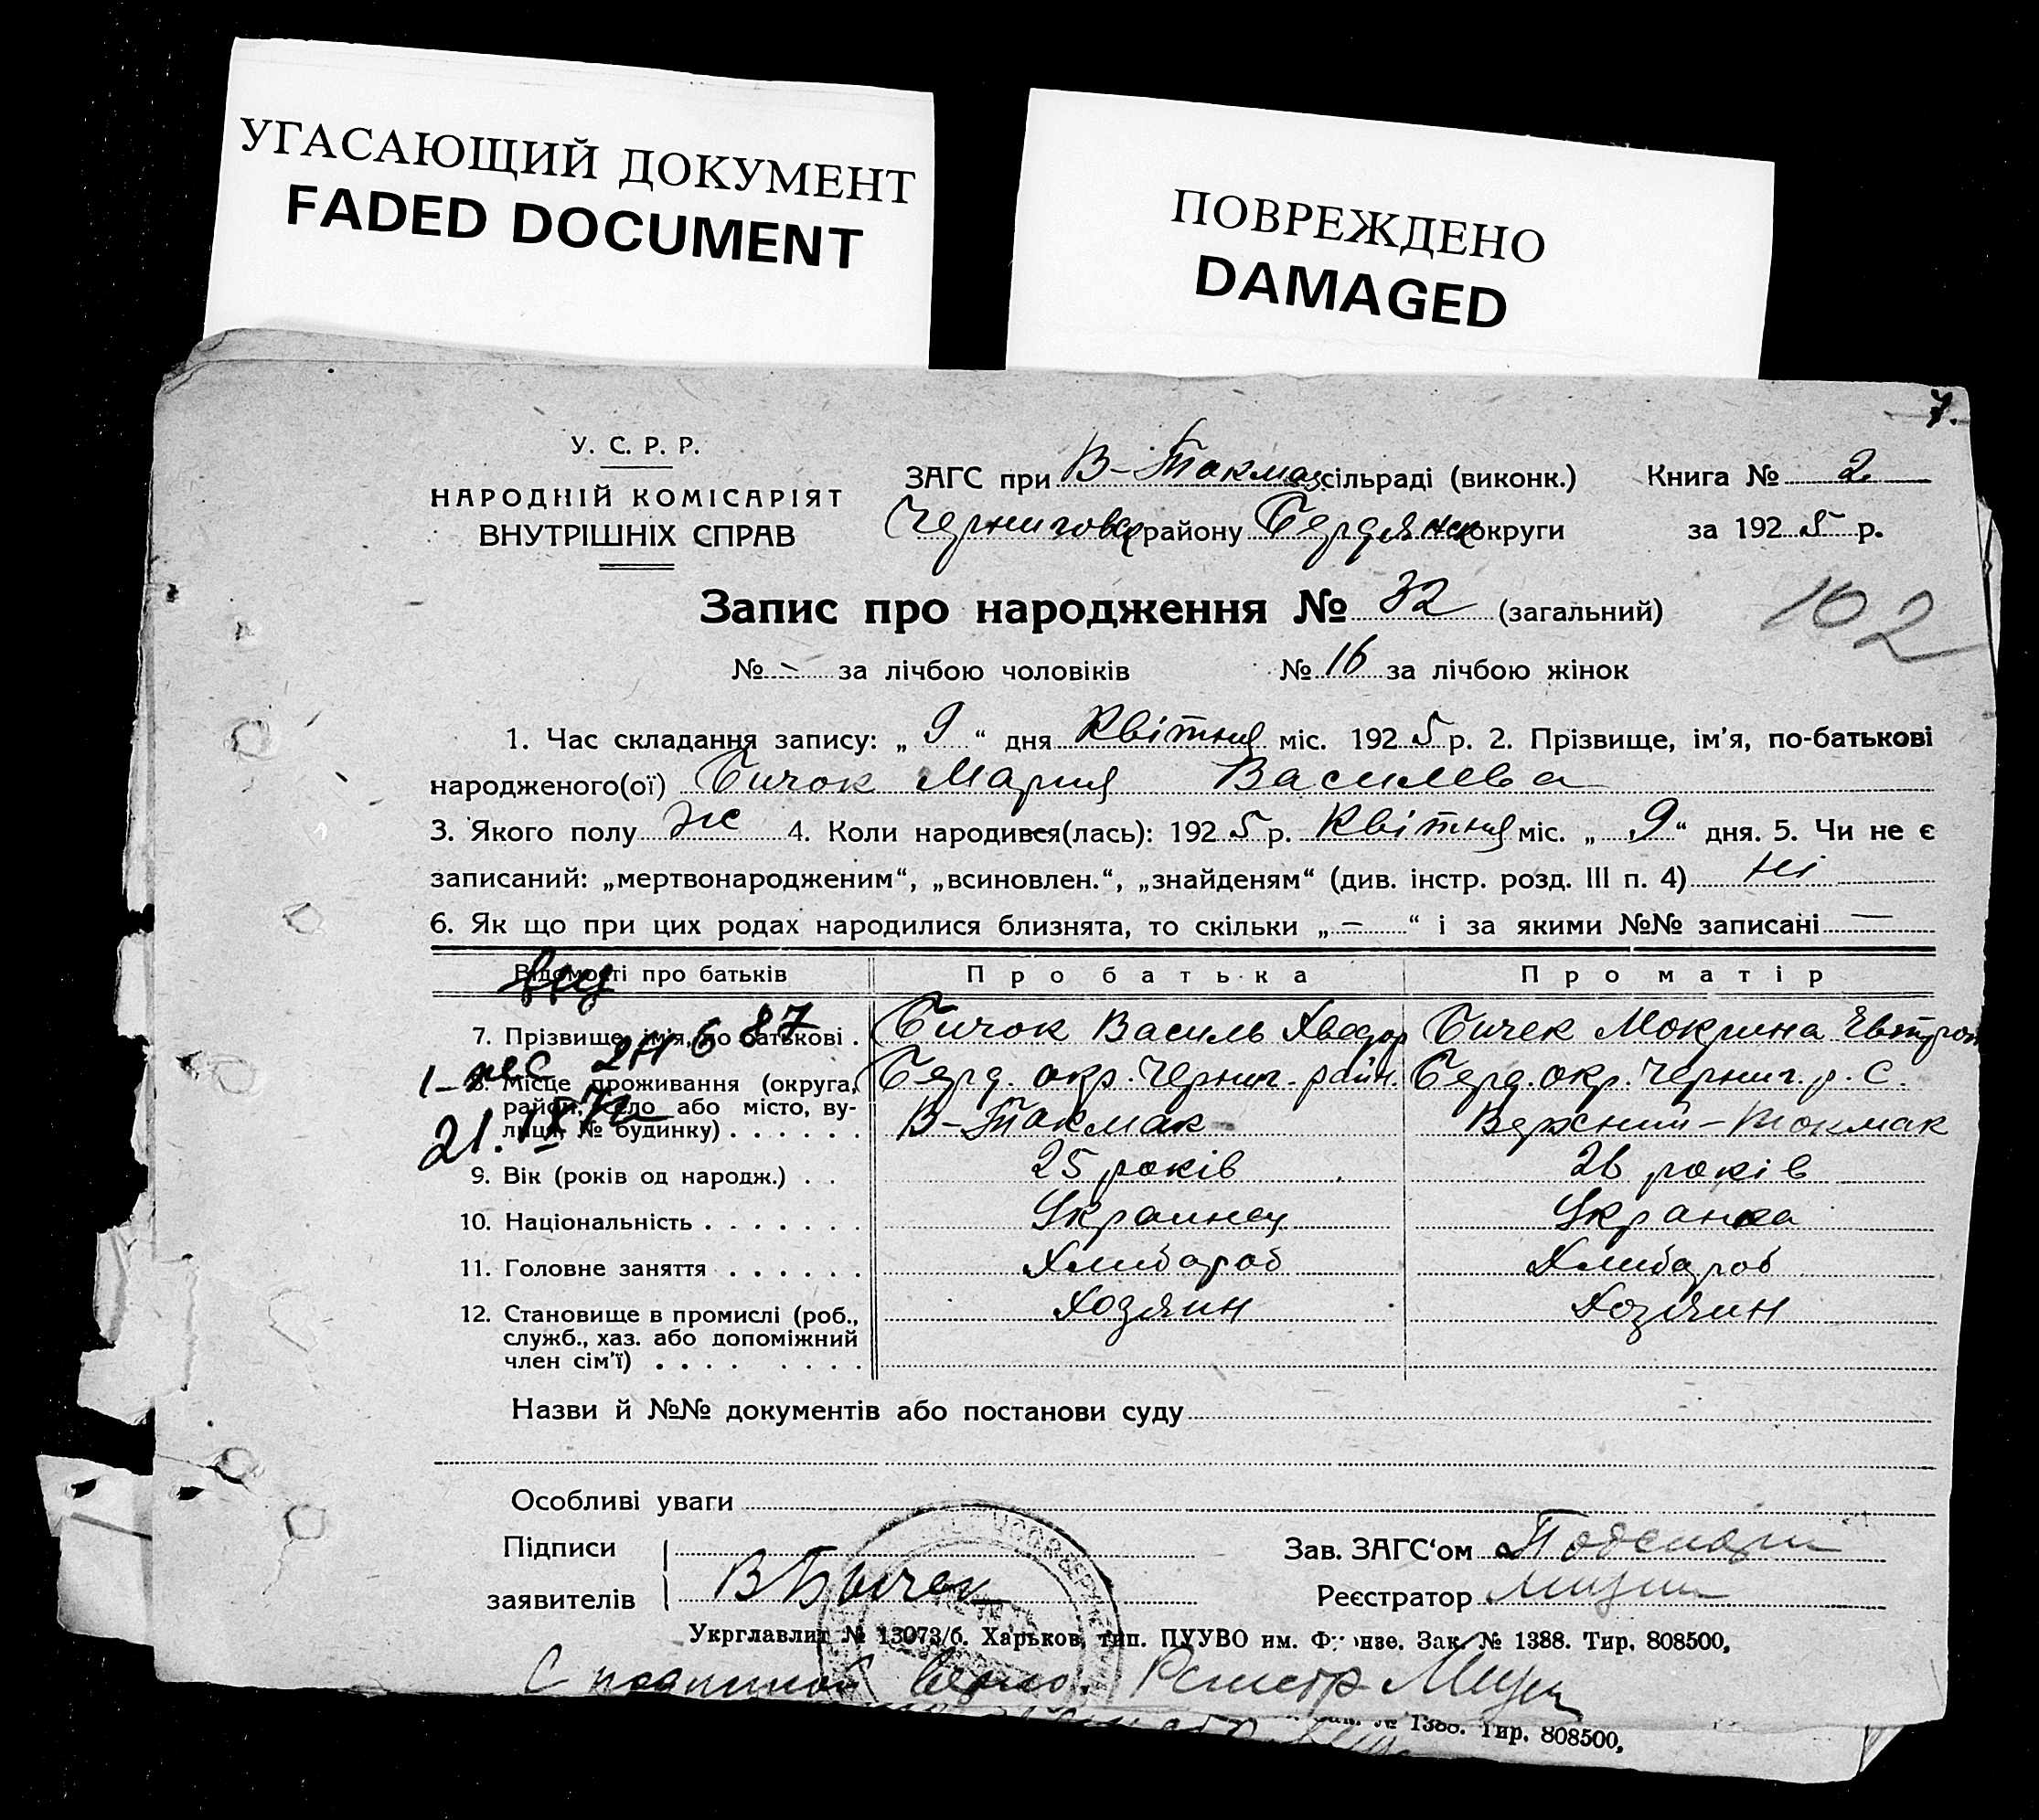 УГАСАЮЩИЙ ДОКУМЕНТ
FADED DOCUMENT
ПОВРЕЖДЕНО
DAMAGED
7.
У. С. Р. Р.
НАРОДНІЙ КОМІСАРІЯТ
ВНУТРІШНІХ СПРАВ
ЗАГС при В-Токмац сільраді (виконк.) Книга № 2
Чернигов району Бердянск округи за 1925 р.
Запис про народження № 32 (загальний)
102
№ - за лічбою чоловіків № 16 за лічбою жінок
1. Час складання запису: „ 9 “ дня Квітня міс. 1925 р. 2. Прізвище, ім'я, по-батькові
народженого(ої) Бичок Мария Василева
3. Якого полу ж 4. Коли народився(лась): 1925 р. Квітня міс. „ 9 “ дня. 5. Чи не є
записаний: „мертвонародженим“, „всиновлен.“, „знайденям“ (див. інстр. розд. III п. 4) ні
6. Як що при цих родах народилися близнята, то скільки „ — “ і за якими №№ записані —
Відомості про батьків Про батька Про матір
7. Прізвище, ім'я, по батькові . Бичок Василь Хведор Бичек Мокрина
8. Місце проживання (округа, Берд. окр. Черниг. район. Берд. окр. Черниг. р. С.
район, село або місто, ву-
лиця, № будинку) . . . . . . В-Токмак Верхний-Токмак
21. IX 72
9. Вік (років од народж.) . . 25 років 26 років
10. Національність . . . . . . . Украинец Укранка
11. Головне заняття . . . . . . Хлибароб Хлибароб
12. Становище в промислі (роб., Хозяин Хозяин
служб., хаз. або допоміжний
член сім'ї) . . . . . . . .
Назви й №№ документів або постанови суду
Особливі уваги
Підписи
заявителів В Бычек
Зав. ЗАГС‘ом
Реєстратор
Укрглавлит № 13073/б. Харьков, тип. ПУУВО им. Фрунзе. Зак. № 1388. Тир. 808500,
С подлиной верно. Регистр
№ 1388. Тир. 808500,